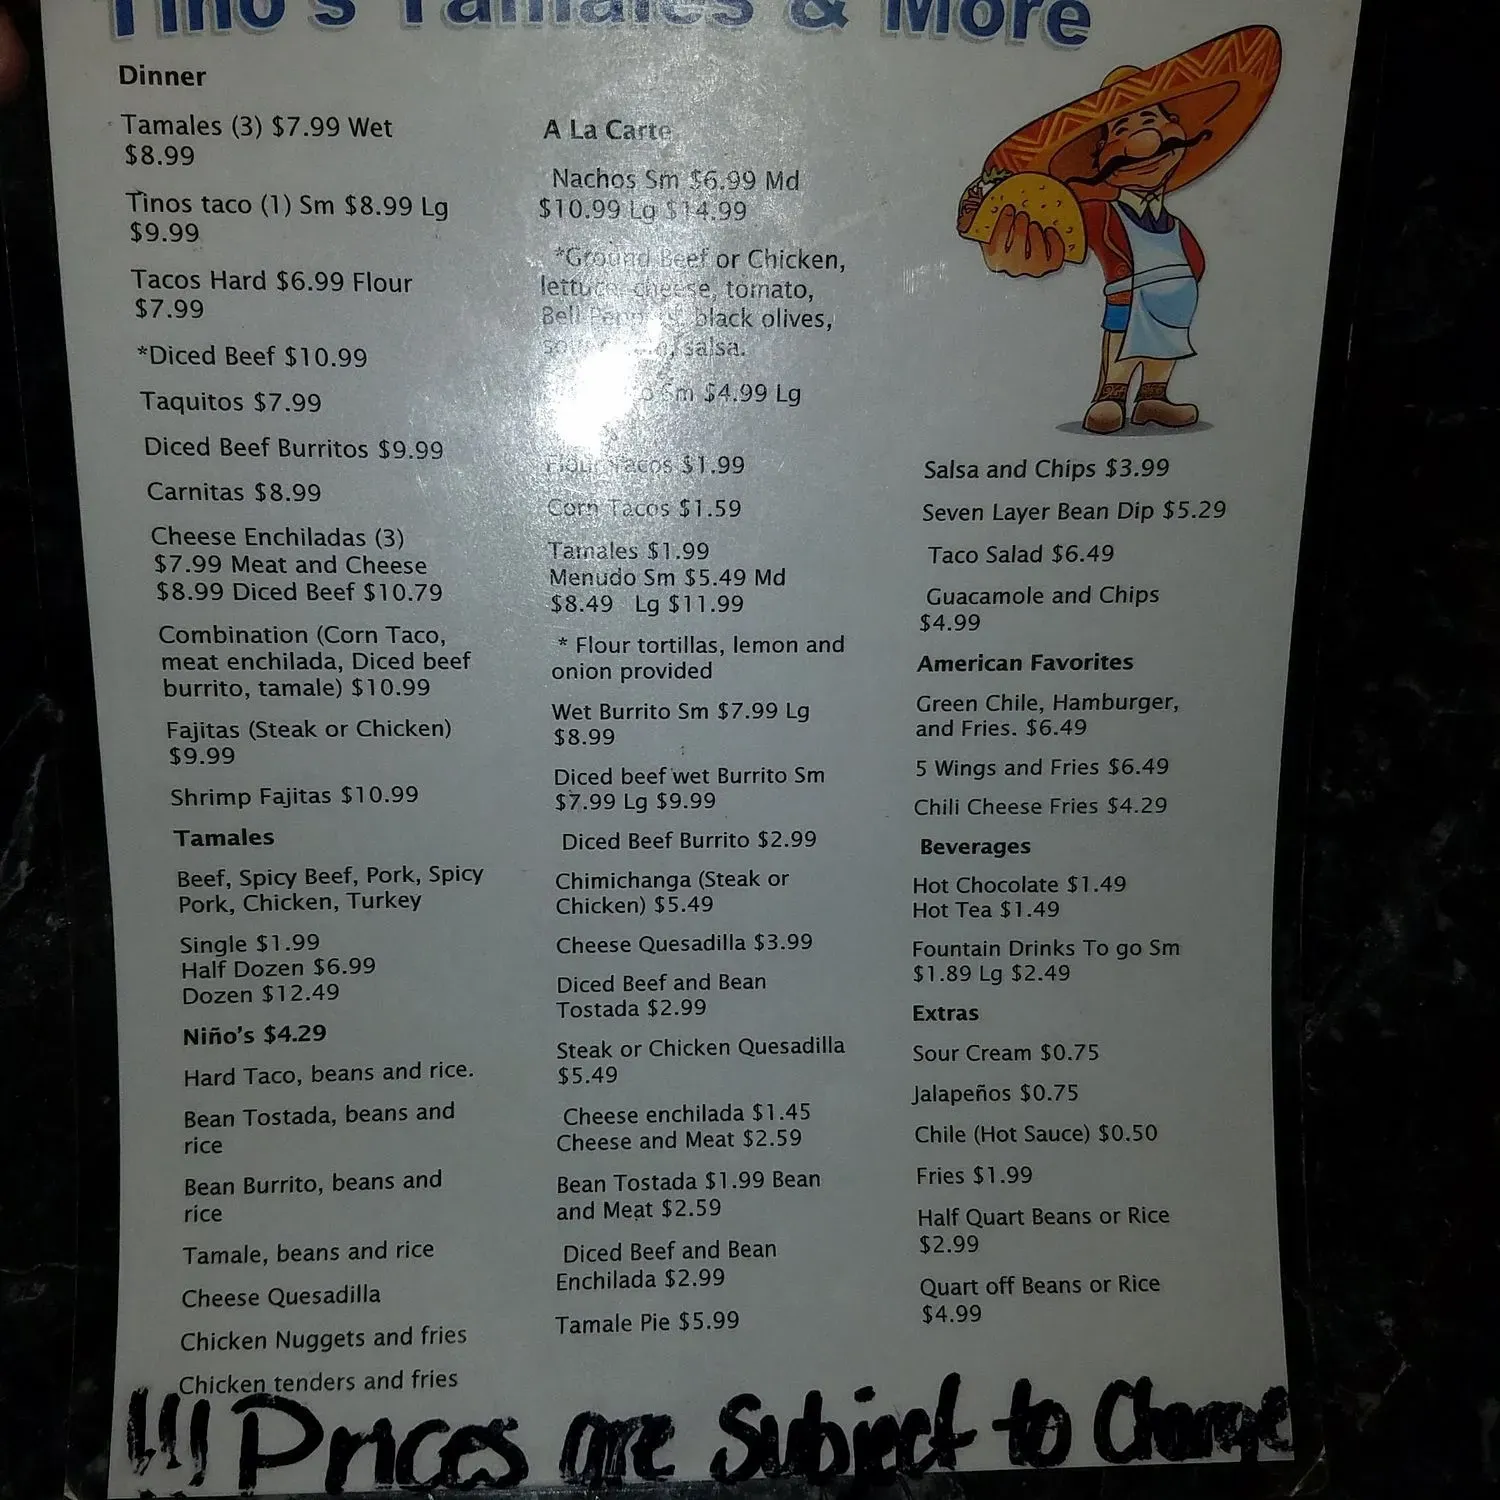 Tino's Tamales & More
Dinner
Tamales (3) $7.99 Wet
$8.99
Tinos taco (1) Sm $8.99 Lg
$9.99
Tacos Hard $6.99 Flour
$7.99
*Diced Beef $10.99
Taquitos $7.99
Diced Beef Burritos $9.99
Carnitas $8.99
Cheese Enchiladas (3)
$7.99 Meat and Cheese
$8.99 Diced Beef $10.79
Combination (Corn Taco,
meat enchilada, Diced beef
burrito, tamale) $10.99
Fajitas (Steak or Chicken)
$9.99
Shrimp Fajitas $10.99
Tamales
Beef, Spicy Beef, Pork, Spicy
Pork, Chicken, Turkey
Single $1.99
Half Dozen $6.99
Dozen $12.49
Niño's $4.29
Hard Taco, beans and rice.
Bean Tostada, beans and
rice
Bean Burrito, beans and
rice
Tamale, beans and rice
Cheese Quesadilla
Chicken Nuggets and fries
Chicken tenders and fries
A La Carte
Nachos Sm $6.99 Md
$10.99 Lg $14.99
*Ground Beef or Chicken,
lettuce, cheese, tomato,
Bell Peppers, black olives,
salsa.
Sm $4.99 Lg
Flour Tacos $1.99
Corn Tacos $1.59
Tamales $1.99
Menudo Sm $5.49 Md
$8.49 Lg $11.99
* Flour tortillas, lemon and
onion provided
Wet Burrito Sm $7.99 Lg
$8.99
Diced beef wet Burrito Sm
$7.99 Lg $9.99
Diced Beef Burrito $2.99
Chimichanga (Steak or
Chicken) $5.49
Cheese Quesadilla $3.99
Diced Beef and Bean
Tostada $2.99
Steak or Chicken Quesadilla
$5.49
Cheese enchilada $1.45
Cheese and Meat $2.59
Bean Tostada $1.99 Bean
and Meat $2.59
Diced Beef and Bean
Enchilada $2.99
Tamale Pie $5.99
Salsa and Chips $3.99
Seven Layer Bean Dip $5.29
Taco Salad $6.49
Guacamole and Chips
$4.99
American Favorites
Green Chile, Hamburger,
and Fries. $6.49
5 Wings and Fries $6.49
Chili Cheese Fries $4.29
Beverages
Hot Chocolate $1.49
Hot Tea $1.49
Fountain Drinks To go Sm
$1.89 Lg $2.49
Extras
Sour Cream $0.75
Jalapeños $0.75
Chile (Hot Sauce) $0.50
Fries $1.99
Half Quart Beans or Rice
$2.99
Quart off Beans or Rice
$4.99
!!! Prices are Subject to Change